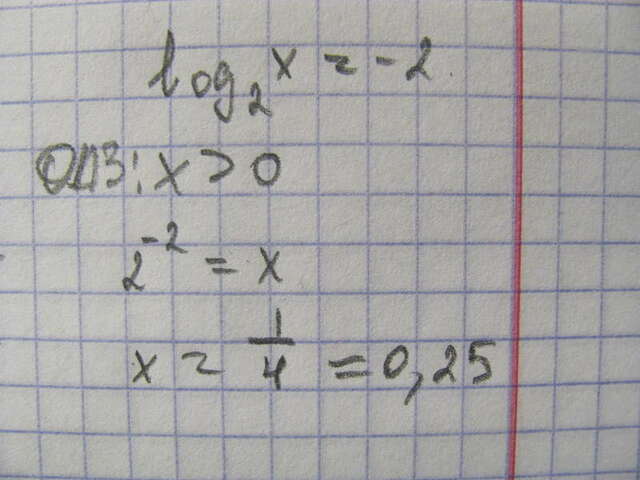 log₂x = -2
ОДЗ: x > 0
2⁻² = x
x = 1/4 = 0,25